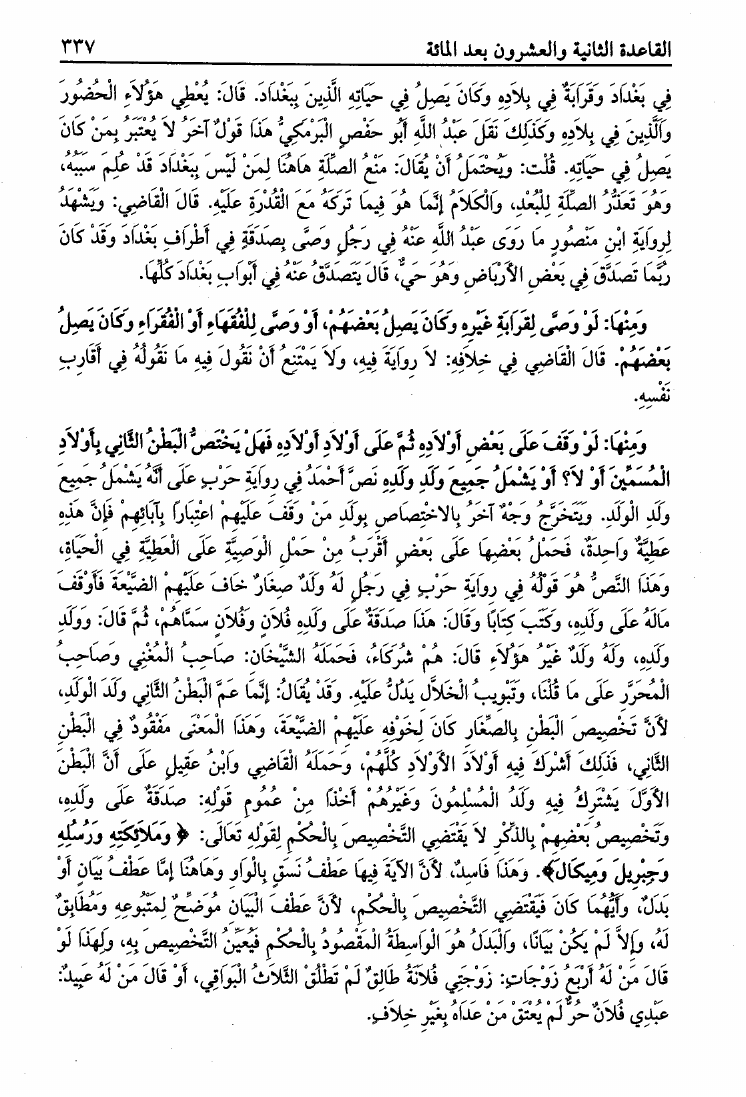 القاعدة الثانية والعشرون بعد المائة ٣٣٧
فِي بَغْدَادَ وَقَرَابَةٌ فِي بِلَادِهِ وَكَانَ يَصِلُ فِي حَيَاتِهِ الَّذِينَ بِبَغْدَادَ. قَالَ: يُعْطِي هَؤُلَاءِ الْحُضُورَ
وَالَّذِينَ فِي بِلَادِهِ وَكَذَلِكَ نَقَلَ عَبْدُ اللَّهِ أَبُو حَفْصٍ الْبَرْمَكِيُّ هَذَا قَوْلٌ آخَرُ لَا يُعْتَبَرُ بِمَنْ كَانَ
يَصِلُ فِي حَيَاتِهِ. قُلْت: وَيُحْتَمَلُ أَنْ يُقَالَ: مَنْعُ الصِّلَةِ هَاهُنَا لِمَنْ لَيْسَ بِبَغْدَادَ قَدْ عُلِمَ سَبَبُهُ،
وَهُوَ تَعَذُّرُ الصِّلَةِ لِلْبُعْدِ، وَالْكَلَامُ إنَّمَا هُوَ فِيمَا تَرَكَهُ مَعَ الْقُدْرَةِ عَلَيْهِ. قَالَ الْقَاضِي: وَيَشْهَدُ
لِرِوَايَةِ ابْنِ مَنْصُورٍ مَا رَوَى عَبْدُ اللَّهِ عَنْهُ فِي رَجُلٍ وَصَّى بِصَدَقَةٍ فِي أَطْرَافِ بَغْدَادَ وَقَدْ كَانَ
رُبَّمَا تَصَدَّقَ فِي بَعْضِ الْأَرْبَاضِ وَهُوَ حَيٌّ، قَالَ يَتَصَدَّقُ عَنْهُ فِي أَبْوَابِ بَغْدَادَ كُلِّهَا.
وَمِنْهَا: لَوْ وَصَّى لِقَرَابَةِ غَيْرِهِ وَكَانَ يَصِلُ بَعْضَهُمْ، أَوْ وَصَّى لِلْفُقَهَاءِ أَوْ الْفُقَرَاءِ وَكَانَ يَصِلُ
بَعْضَهُمْ. قَالَ الْقَاضِي فِي خِلَافِهِ: لَا رِوَايَةَ فِيهِ، وَلَا يَمْتَنِعُ أَنْ نَقُولَ فِيهِ مَا نَقُولُهُ فِي أَقَارِبِ
نَفْسِهِ.
وَمِنْهَا: لَوْ وَقَفَ عَلَى بَعْضِ أَوْلَادِهِ ثُمَّ عَلَى أَوْلَادِ أَوْلَادِهِ فَهَلْ يَخْتَصُّ الْبَطْنُ الثَّانِي بِأَوْلَادِ
الْمُسَمَّيْنَ أَوْ لَا؟ أَوْ يَشْمَلُ جَمِيعَ وَلَدِ وَلَدِهِ نَصَّ أَحْمَدُ فِي رِوَايَةِ حَرْبٍ عَلَى أَنَّهُ يَشْمَلُ جَمِيعَ
وَلَدِ الْوَلَدِ. وَيَتَخَرَّجُ وَجْهٌ آخَرُ بِالِاخْتِصَاصِ بِوَلَدِ مَنْ وَقَفَ عَلَيْهِمْ اعْتِبَارًا بِآبَائِهِمْ فَإِنَّ هَذِهِ
عَطِيَّةٌ وَاحِدَةٌ، فَحَمْلُ بَعْضِهَا عَلَى بَعْضٍ أَقْرَبُ مِنْ حَمْلِ الْوَصِيَّةِ عَلَى الْعَطِيَّةِ فِي الْحَيَاةِ،
وَهَذَا النَّصُّ هُوَ قَوْلُهُ فِي رِوَايَةِ حَرْبٍ فِي رَجُلٍ لَهُ وَلَدٌ صِغَارٌ خَافَ عَلَيْهِمْ الضَّيْعَةَ فَأَوْقَفَ
مَالَهُ عَلَى وَلَدِهِ، وَكَتَبَ كِتَابًا وَقَالَ: هَذَا صَدَقَةٌ عَلَى وَلَدِهِ فُلَانٍ وَفُلَانٍ سَمَّاهُمْ، ثُمَّ قَالَ: وَوَلَدِ
وَلَدِهِ، وَلَهُ وَلَدٌ غَيْرُ هَؤُلَاءِ قَالَ: هُمْ شُرَكَاءُ، فَحَمَلَهُ الشَّيْخَانِ: صَاحِبُ الْمُغْنِي وَصَاحِبُ
الْمُحَرَّرِ عَلَى مَا قُلْنَا، وَتَبْوِيبُ الْخَلَّالِ يَدُلُّ عَلَيْهِ. وَقَدْ يُقَالُ: إنَّمَا عَمَّ الْبَطْنُ الثَّانِي وَلَدَ الْوَلَدِ،
لِأَنَّ تَخْصِيصَ الْبَطْنِ بِالصِّغَارِ كَانَ لِخَوْفِهِ عَلَيْهِمْ الضَّيْعَةَ، وَهَذَا الْمَعْنَى مَفْقُودٌ فِي الْبَطْنِ
الثَّانِي، فَلِذَلِكَ أَشْرَكَ فِيهِ أَوْلَادَ الْأَوْلَادِ كُلَّهُمْ، وَحَمَلَهُ الْقَاضِي وَابْنُ عَقِيلٍ عَلَى أَنَّ الْبَطْنَ
الْأَوَّلَ يَشْتَرِكُ فِيهِ وَلَدُ الْمُسْلِمُونَ وَغَيْرُهُمْ أَخْذًا مِنْ عُمُومِ قَوْلِهِ: صَدَقَةٌ عَلَى وَلَدِهِ،
وَتَخْصِيصُ بَعْضِهِمْ بِالذِّكْرِ لَا يَقْتَضِي التَّخْصِيصَ بِالْحُكْمِ لِقَوْلِهِ تَعَالَى: ﴿ وَمَلَائِكَتِهِ وَرُسُلِهِ
وَجِبْرِيلَ وَمِيكَالَ﴾. وَهَذَا فَاسِدٌ، لِأَنَّ الْآيَةَ فِيهَا عَطْفُ نَسَقٍ بِالْوَاوِ وَهَاهُنَا إمَّا عَطْفُ بَيَانٍ أَوْ
بَدَلٌ، وَأَيُّهُمَا كَانَ فَيَقْتَضِي التَّخْصِيصَ بِالْحُكْمِ، لِأَنَّ عَطْفَ الْبَيَانِ مُوَضِّحٌ لِمَتْبُوعِهِ وَمُطَابِقٌ
لَهُ، وَإِلَّا لَمْ يَكُنْ بَيَانًا، وَالْبَدَلُ هُوَ الْوَاسِطَةُ الْمَقْصُودُ بِالْحُكْمِ فَيُعَيِّنُ التَّخْصِيصَ بِهِ، وَلِهَذَا لَوْ
قَالَ مَنْ لَهُ أَرْبَعُ زَوْجَاتٍ: زَوْجَتِي فُلَانَةُ طَالِقٌ لَمْ تَطْلُقْ الثَّلَاثُ الْبَوَاقِي، أَوْ قَالَ مَنْ لَهُ عَبِيدٌ:
عَبْدِي فُلَانٌ حُرٌّ لَمْ يُعْتَقْ مَنْ عَدَاهُ بِغَيْرِ خِلَافٍ.